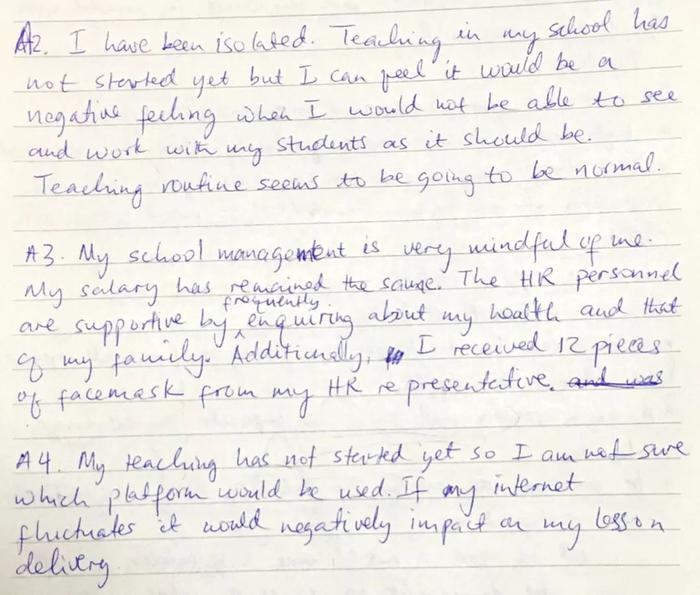 A2. I have been isolated. Teaching in my school has
not started yet but I can feel it would be a
negative feeling when I would not be able to see
and work with my students as it should be.
Teaching routine seems to be going to be normal.
A3. My school management is very mindful of me.
My salary has remained the same. The HR personnel
are supportive by frequently enquiring about my health and that
of my family. Additionally, I received 12 pieces
of facemask from my HR representative. and was
A4. My teaching has not started yet so I am not sure
which platform would be used. If my internet
fluctuates it would negatively impact on my lesson
delivery.